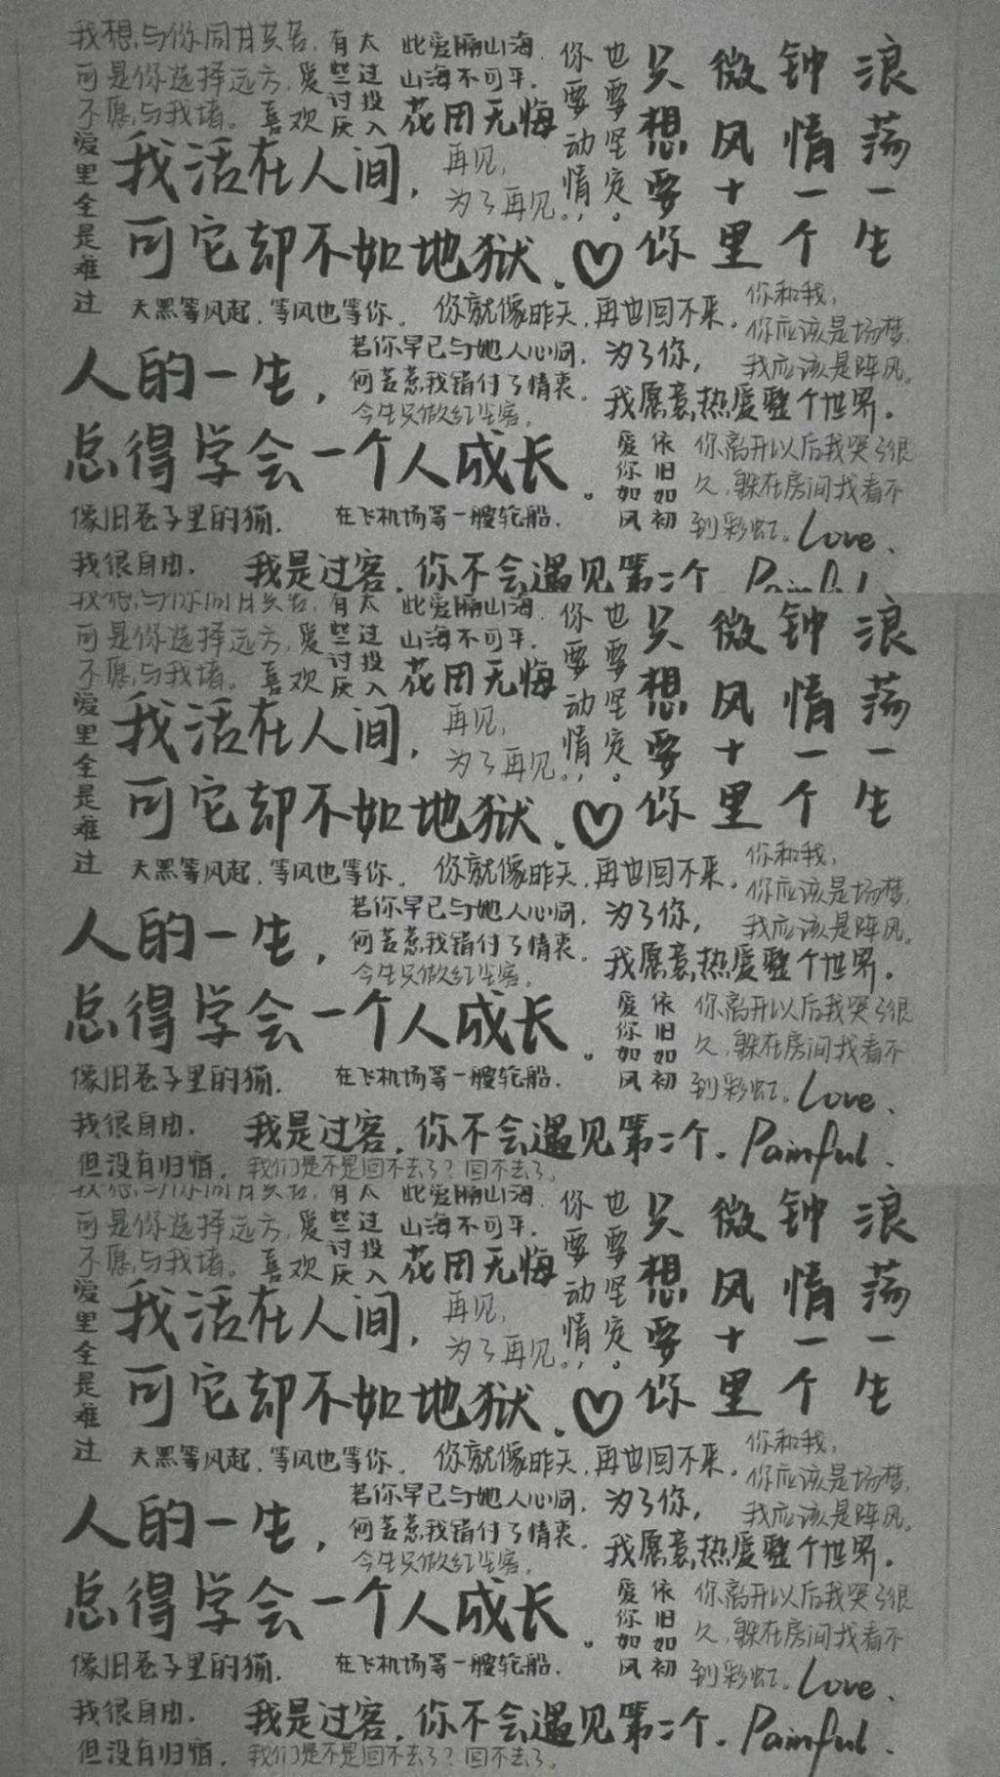 我想与你同甘共苦,
可是你选择远方,
不愿与我堵。
爱里全是难过
喜欢
有些讨厌
太过投入
此爱隔山海,
山海不可平.
花团无悔
你要动情,
也要坚定。
只想要你
微风十里
钟情一个
浪荡一生
我活在人间,
可它却不如地狱.♡
再见,
为了再见。
天黑等风起,等风也等你.
你就像昨天,再也回不来.
你和我,
你应该是场梦,
我应该是阵风。
人的一生,
总得学会一个人成长.
若你早已与她人心同,
何苦惹我错付了情衷.
今生只做红尘客.
为了你,
我愿意热爱整个世界.
爱你如风
依旧如初
你离开以后我哭了很
久,躲在房间找看不
到彩虹。
Love.
像旧巷子里的猫.
在飞机场等一艘轮船.
我很自由.
我是过客.你不会遇见第二个.
Painful
我想与你同甘共苦,
可是你选择远方,
不愿与我堵。
爱里全是难过
喜欢
有些讨厌
太过投入
此爱隔山海,
山海不可平.
花团无悔
你要动情,
也要坚定。
只想要你
微风十里
钟情一个
浪荡一生
我活在人间,
可它却不如地狱.♡
再见,
为了再见。
天黑等风起,等风也等你.
你就像昨天,再也回不来.
你和我,
你应该是场梦,
我应该是阵风。
人的一生,
总得学会一个人成长.
若你早已与她人心同,
何苦惹我错付了情衷.
今生只做红尘客.
为了你,
我愿意热爱整个世界.
爱你如风
依旧如初
你离开以后我哭了很
久,躲在房间找看不
到彩虹。
Love.
像旧巷子里的猫.
在飞机场等一艘轮船.
我很自由.
但没有归宿.
我是过客.你不会遇见第二个.
Painful.
我们是不是回不去了?回不去了。
我想与你同甘共苦,
可是你选择远方,
不愿与我堵。
爱里全是难过
喜欢
有些讨厌
太过投入
此爱隔山海,
山海不可平.
花团无悔
你要动情,
也要坚定。
只想要你
微风十里
钟情一个
浪荡一生
我活在人间,
可它却不如地狱.♡
再见,
为了再见。
天黑等风起,等风也等你.
你就像昨天,再也回不来.
你和我,
你应该是场梦,
我应该是阵风。
人的一生,
总得学会一个人成长.
若你早已与她人心同,
何苦惹我错付了情衷.
今生只做红尘客.
为了你,
我愿意热爱整个世界.
爱你如风
依旧如初
你离开以后我哭了很
久,躲在房间找看不
到彩虹。
Love.
像旧巷子里的猫.
在飞机场等一艘轮船.
我很自由.
但没有归宿.
我是过客.你不会遇见第二个.
Painful.
我们是不是回不去了?回不去了。